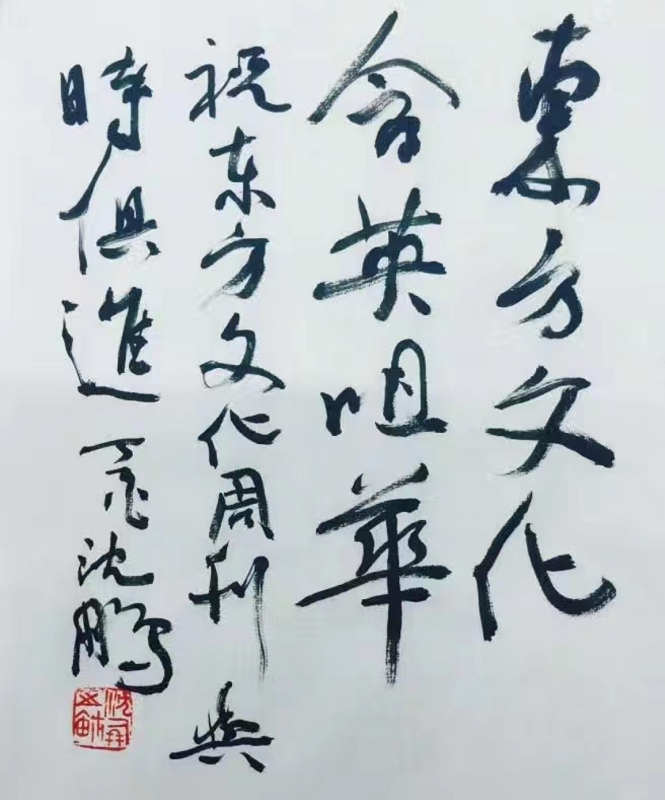 東方文化
含英咀華
祝东方文化周刊與
時俱進 沈鵬